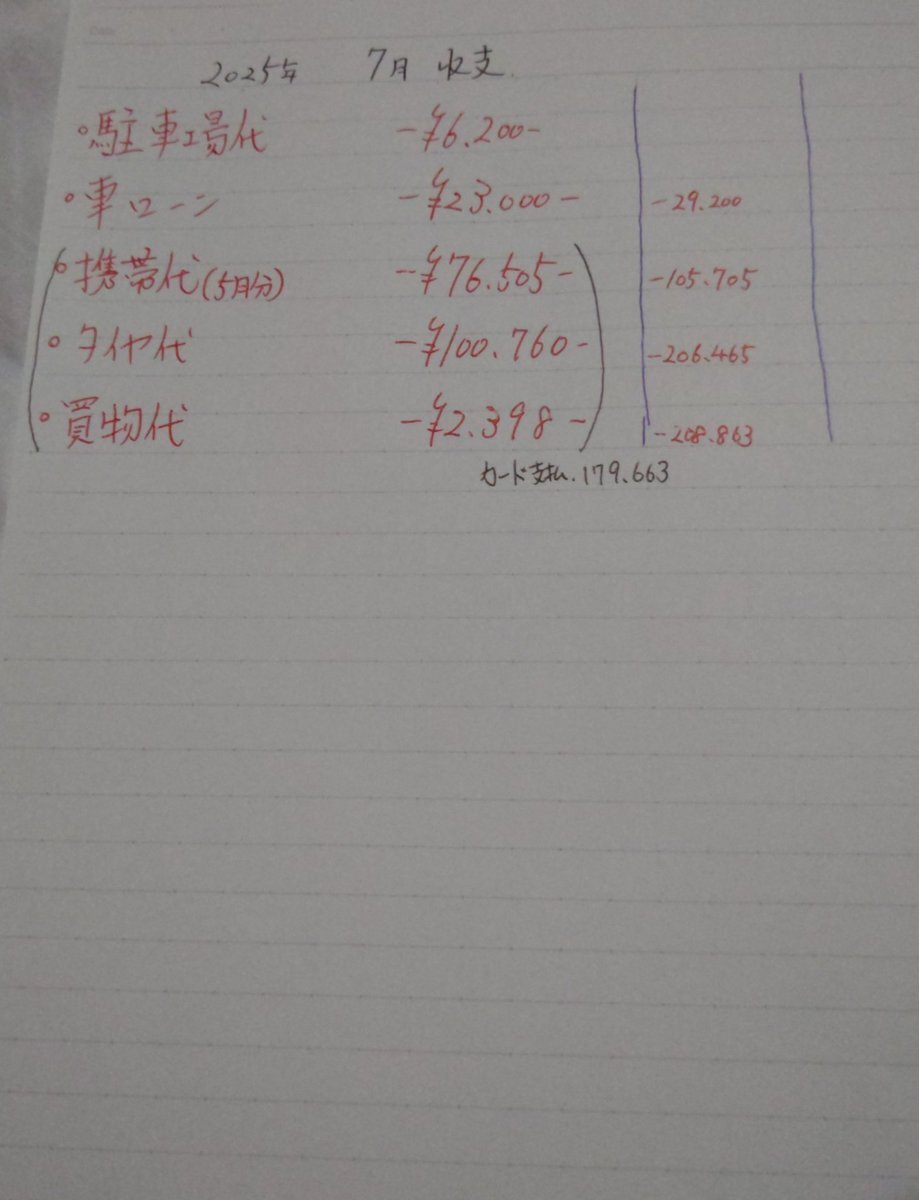 2025年 7月 収支
・駐車場代 -¥6.200-
・車ローン -¥23.000- -29.200
・携帯代(5月分) -¥76.505- -105.705
・タイヤ代 -¥100.760- -206.465
・買物代 -¥2.398- -208.863
カード支払.179.663